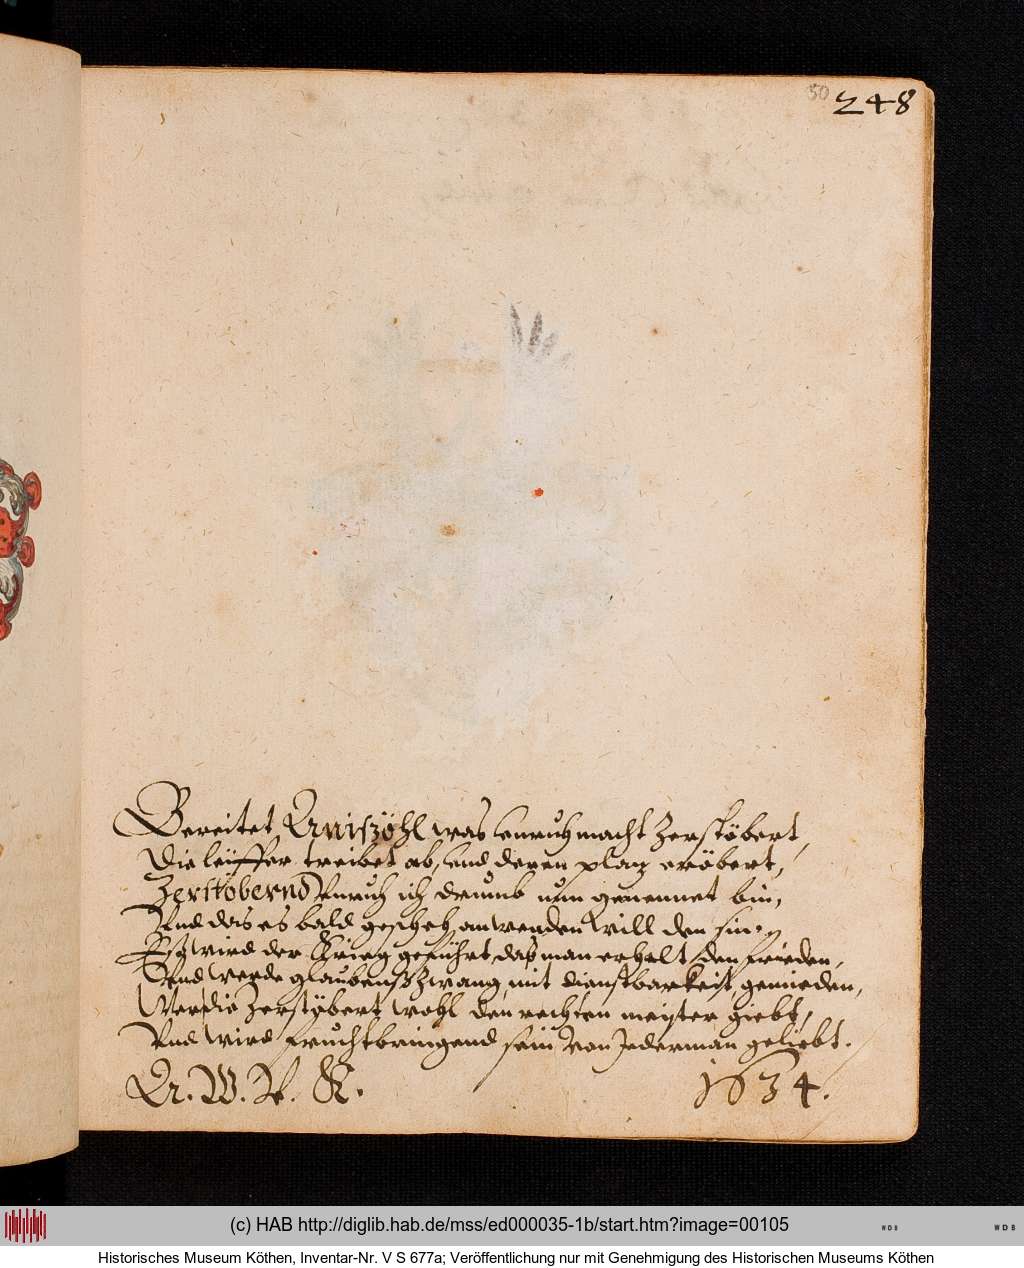 50 248
Bereitet Aniszöhl was unruh macht Zerstöbert,
Die leüffer treibet ab, und deren platz eröbert,
Zerstöbernd Unruh ich drumb nun genennet bin,
Und das es bald gescheh, anwenden will den sin.
Es wird der Krieg geführt, das man erhalt den frieden,
Und werde glaubenszwang, mit dienstbarkeit gemieden,
Wer die Zerstöbert wohl den rechten meister giebt,
Und wird fruchtbringend sein von Jederman geliebt.
A. W. V. K. 1634.
(c) HAB http://diglib.hab.de/mss/ed000035-1b/start.htm?image=00105
WDB
WDB
Historisches Museum Köthen, Inventar-Nr. V S 677a; Veröffentlichung nur mit Genehmigung des Historischen Museums Köthen